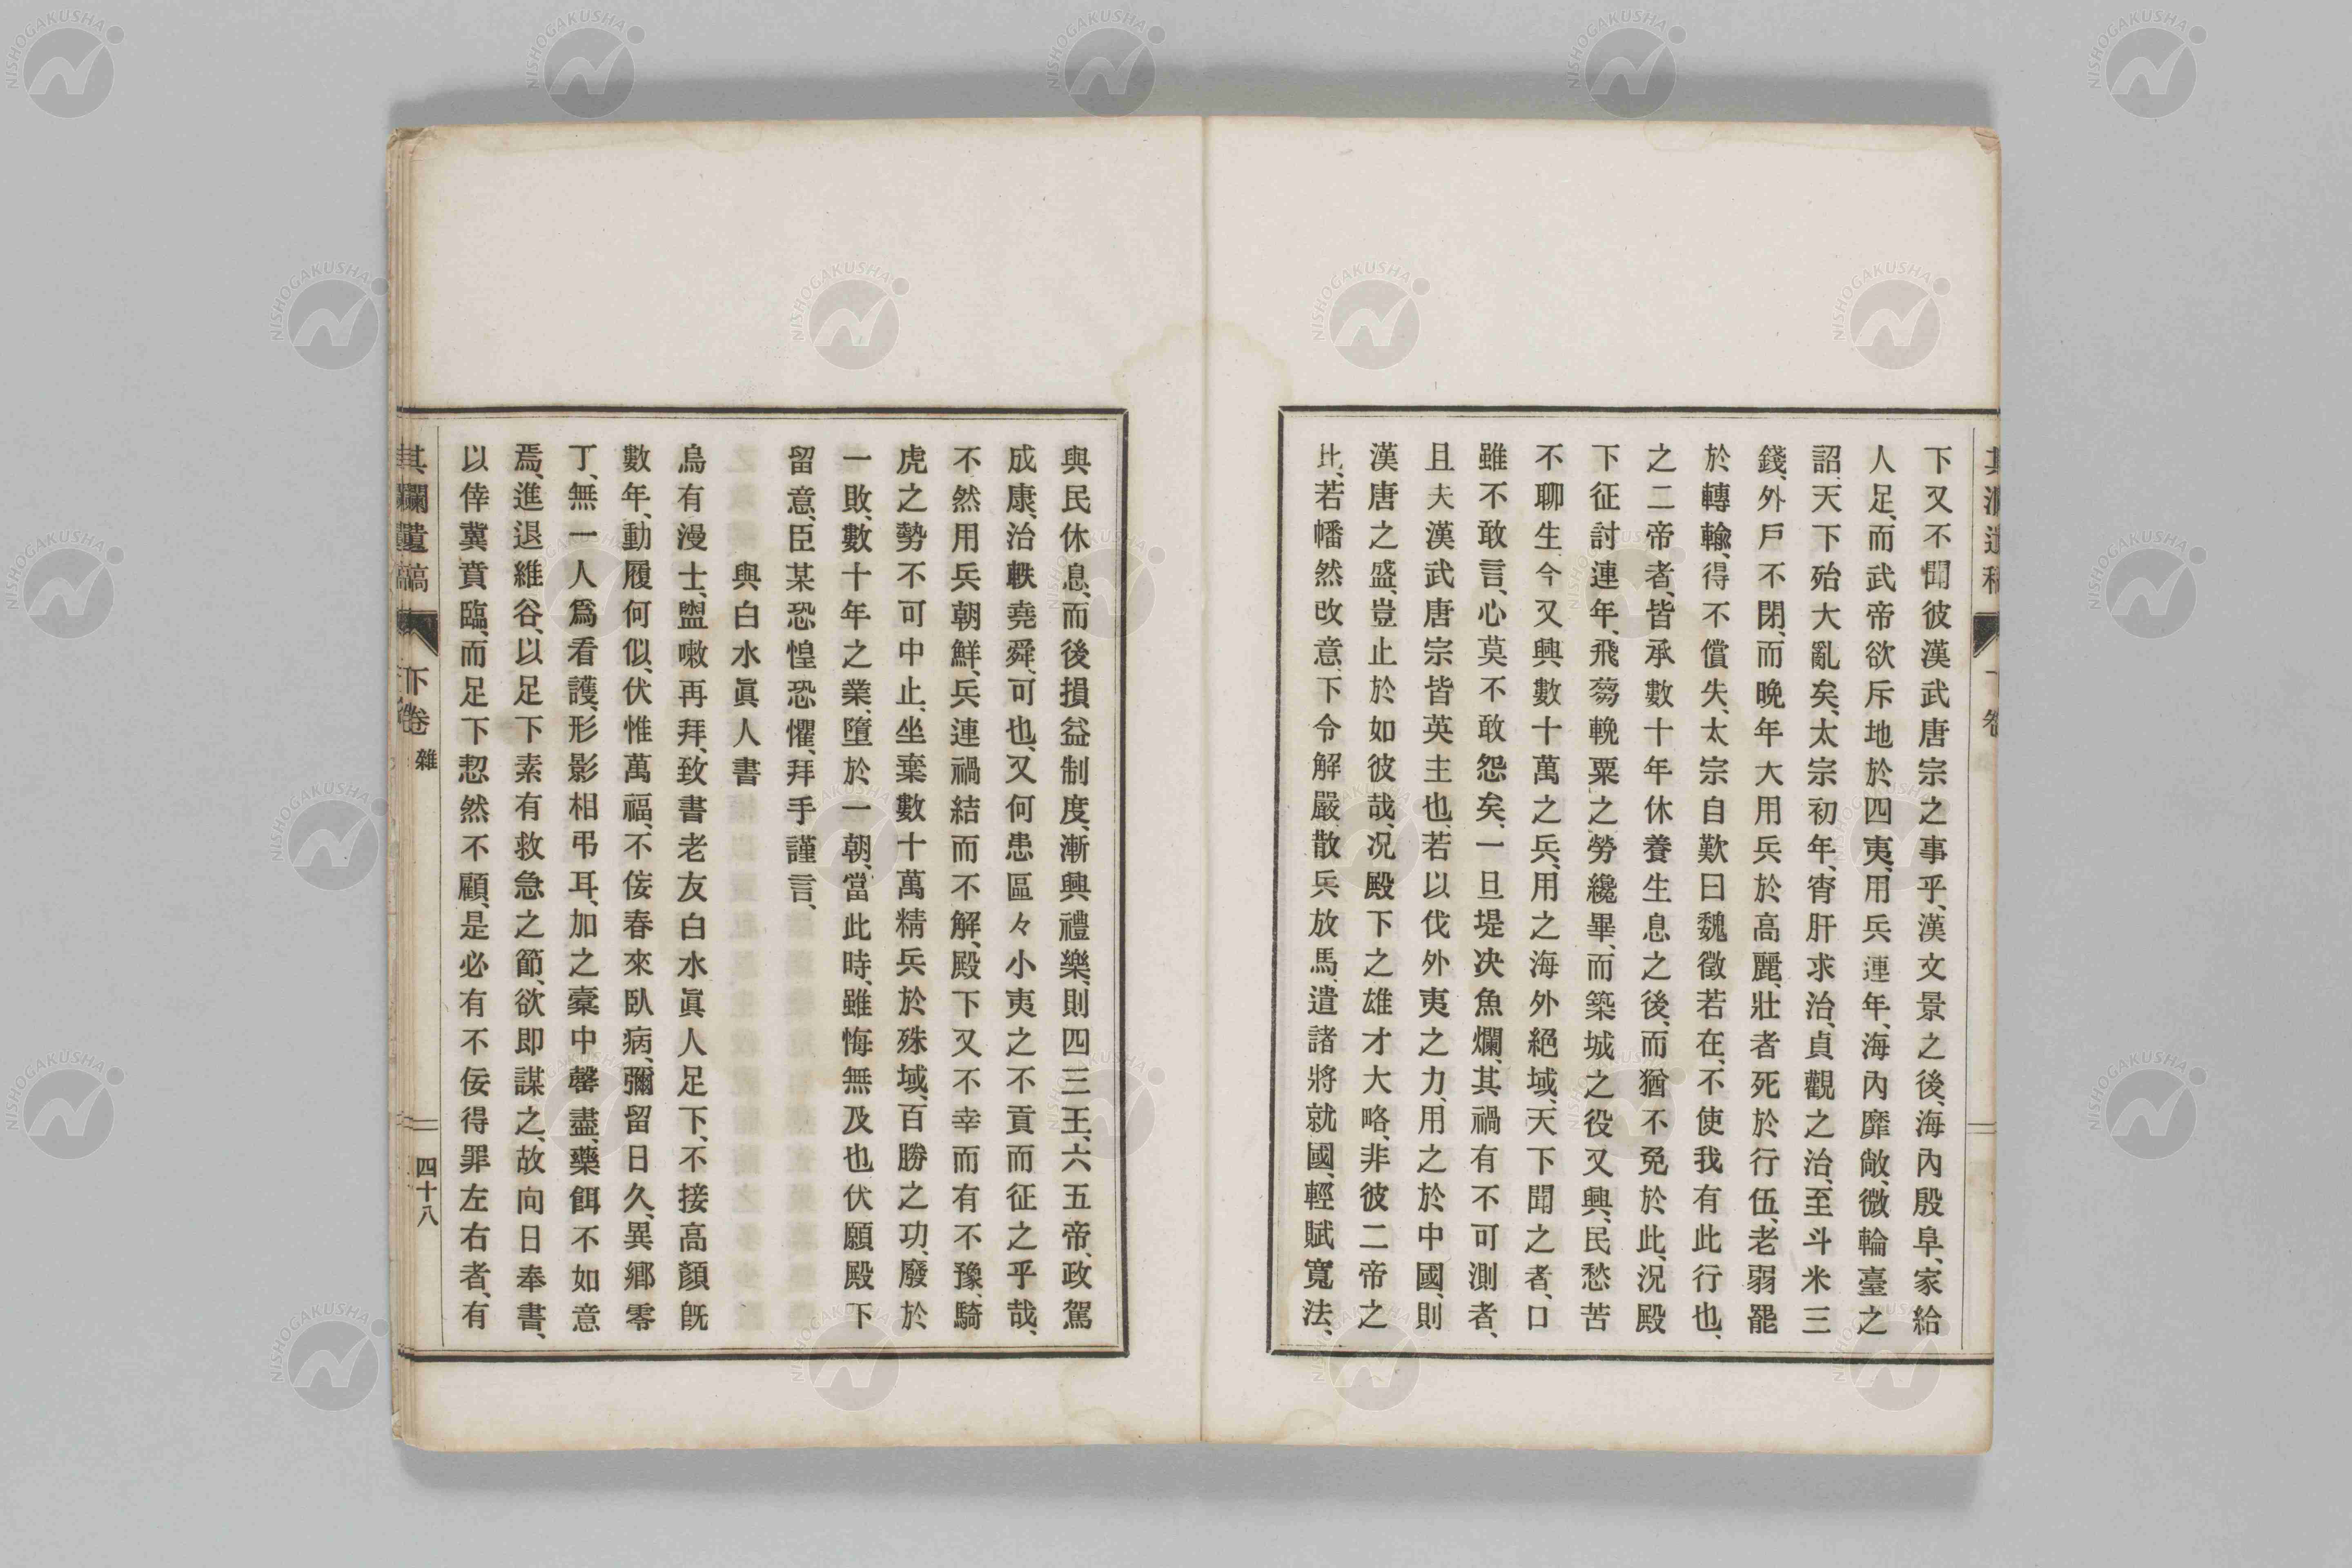 下又不聞彼漢武唐宗之事乎、漢文景之後、海內殷阜、家給
人足、而武帝欲斥地於四夷、用兵連年、海內靡敝、微輪臺之
詔、天下殆大亂矣、太宗初年、宵肝求治、貞觀之治、至斗米三
錢、外戶不閉、而晚年大用兵於高麗、壯者死於行伍、老弱罷
於轉輸、得不償失、太宗自歎曰魏徵若在、不使我有此行也、
之二帝者、皆承數十年休養生息之後、而猶不免於此、況殿
下征討連年、飛蒭輓粟之勞纔畢、而築城之役又興、民愁苦
不聊生、今又興數十萬之兵、用之海外絕域、天下聞之者、口
雖不敢言、心莫不敢怨矣、一旦堤决魚爛、其禍有不可測者、
且夫漢武唐宗皆英主也、若以伐外夷之力、用之於中國、則
漢唐之盛、豈止於如彼哉、况殿下之雄才大略、非彼二帝之
比、若幡然改意、下令解嚴、散兵放馬、遣諸將就國、輕賦寬法、
與民休息、而後損益制度、漸興禮樂、則四三王、六五帝、政駕
成康、治軼堯舜、可也、又何患區々小夷之不貢而征之乎哉、
不然用兵朝鮮、兵連禍結而不解、殿下又不幸而有不豫、騎
虎之勢不可中止、坐棄數十萬精兵於殊域、百勝之功、廢於
一敗、數十年之業、墮於一朝、當此時、雖悔無及也伏願殿下
留意、臣某恐惶恐懼、拜手謹言、
與白水眞人書
烏有漫士、盥嗽再拜、致書老友白水眞人足下、不接高顏旣
數年、動履何似、伏惟萬福、不侫春來臥病、彌留日久、異鄉零
丁、無一人爲看護、形影相弔耳、加之橐中罄盡、藥餌不如意
焉、進退維谷、以足下素有救急之節、欲即謀之、故向日奉書、
以倖冀賁臨、而足下恝然不顧、是必有不侫得罪左右者、有
其瀾遺稿
下卷 雜
四十八
NISHOGAKUSHA